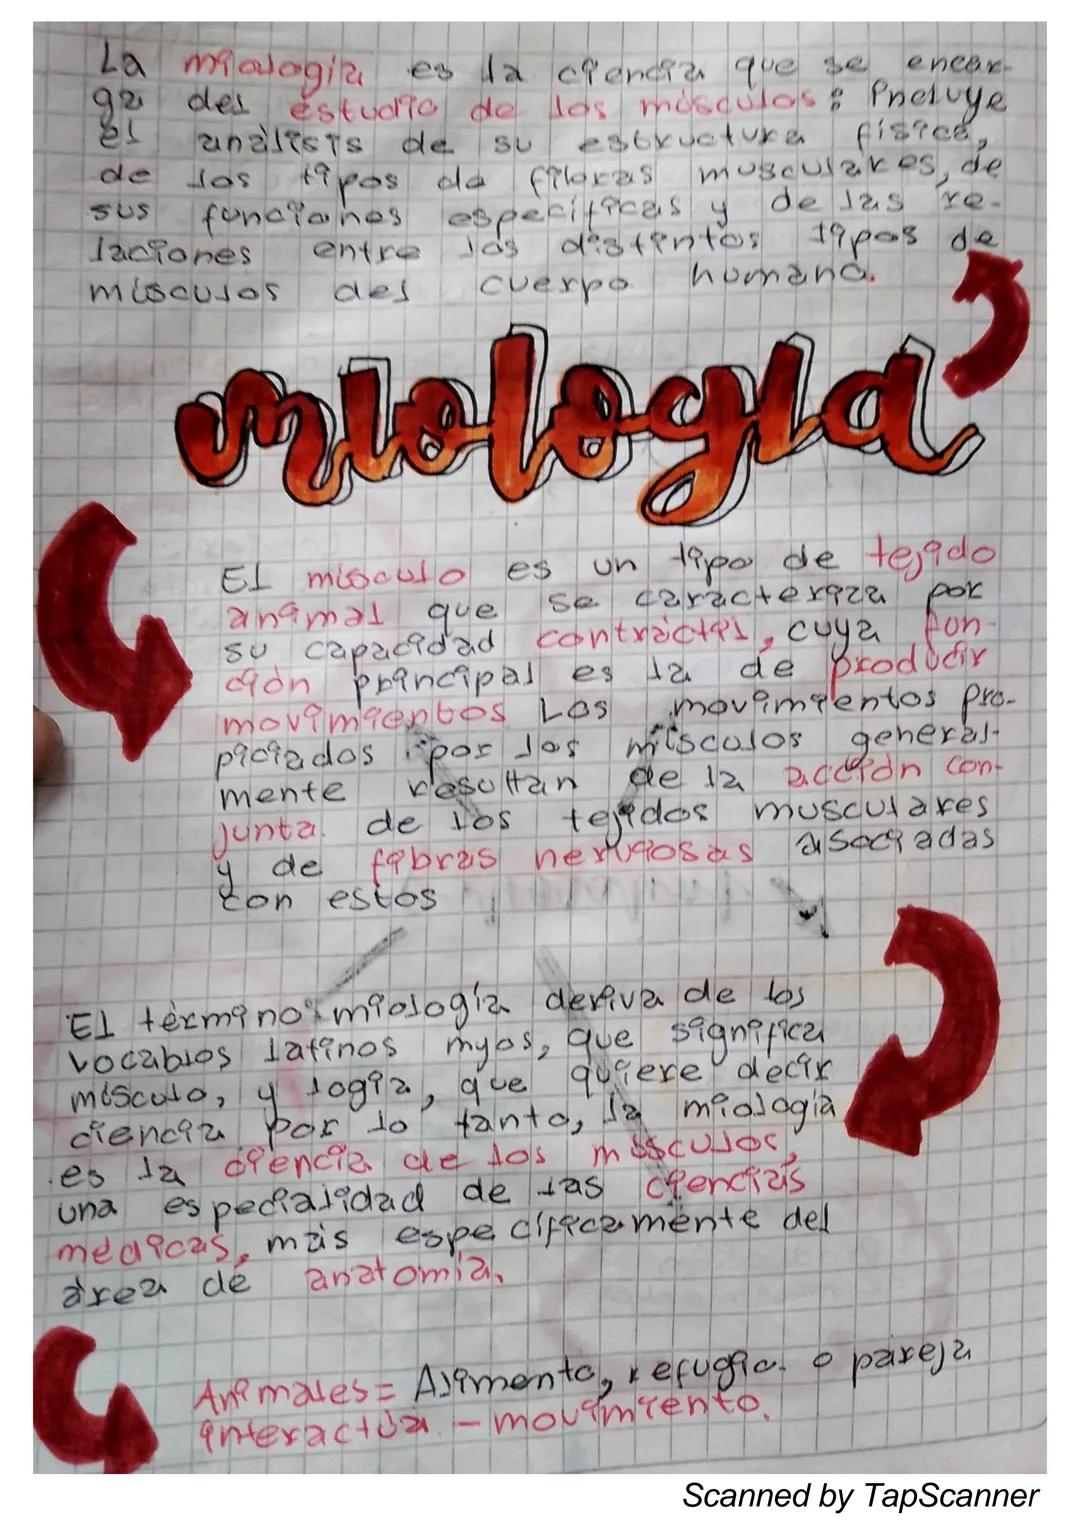 La miología es la ciencia que se encar-
ga del estudio de los músculos; incluye
el análisis de su estructura física,
de los tipos de fibras musculares, de
sus funciones específicas y de las re-
laciones entre los distintos tipos de
músculos del cuerpo humano.
miología
El músculo es un tipo de tejido
animal que se caracteriza por
su capacidad contráctil, cuya fun-
ción principal es la de producir
movimientos Los movimientos pro-
piciados por los músculos general-
mente resultan de la acción con-
junta. de los tejidos musculares
y de fibras nerviosas asociadas
con estos
El término miología deriva de los
vocablos latinos myos, que significa
músculo, y logia, que quiere decir
ciencia por lo tanto, la miología
es la ciencia de los músculos,
una especialidad de las ciencias
médicas, más específicamente del
área de anatomía.
Animales = Alimento, refugio o pareja
interactúa - movimiento.
Scanned by TapScanner